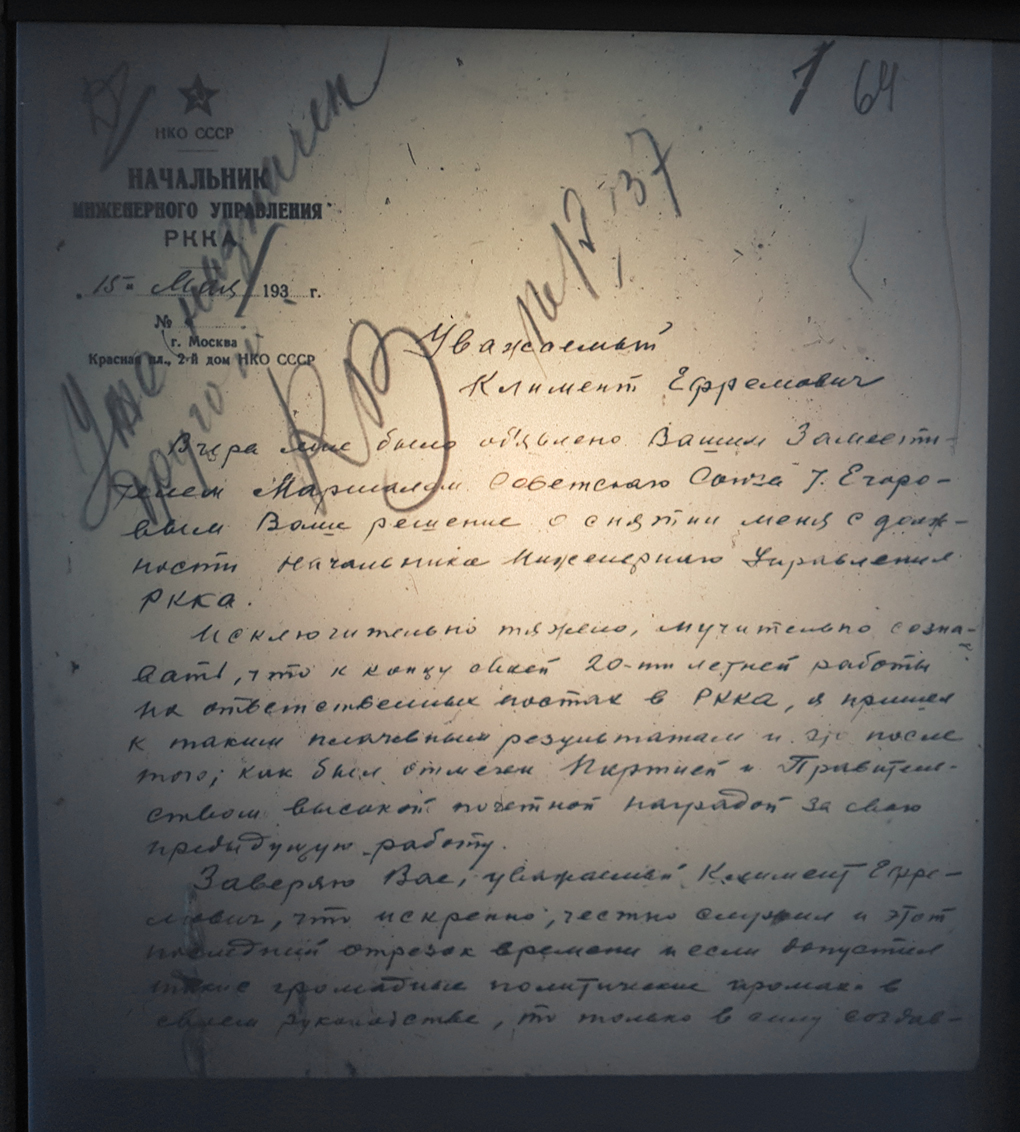 1 64
НКО СССР
НАЧАЛЬНИК
ИНЖЕНЕРНОГО УПРАВЛЕНИЯ
РККА
15го Мая 193 г.
№
г. Москва
Красная пл., 2-й дом НКО СССР
Уже назначен
другой
КВ
37
Уважаемый
Климент Ефремович
Вчера мне было об'явлено Вашим Замести-
телем Маршалом Советского Союза т. Егоро-
вым Ваше решение о снятии меня с долж-
ности Начальника Инженерного Управления
РККА.
Исключительно тяжело, мучительно созна-
вать, что к концу своей 20-ти летней работы
на ответственных постах в РККА, я пришел
к таким плачевным результатам и это после
того, как был отмечен Партией и Правитель-
ством высокой почетной наградой за свою
предыдущую работу.
Заверяю Вас, уважаемый Климент Ефре-
мович, что искренно, честно служил и этот
последний отрезок времени и если допустил
такие громадные политические промахи в
своем руководстве, то только в силу создав-